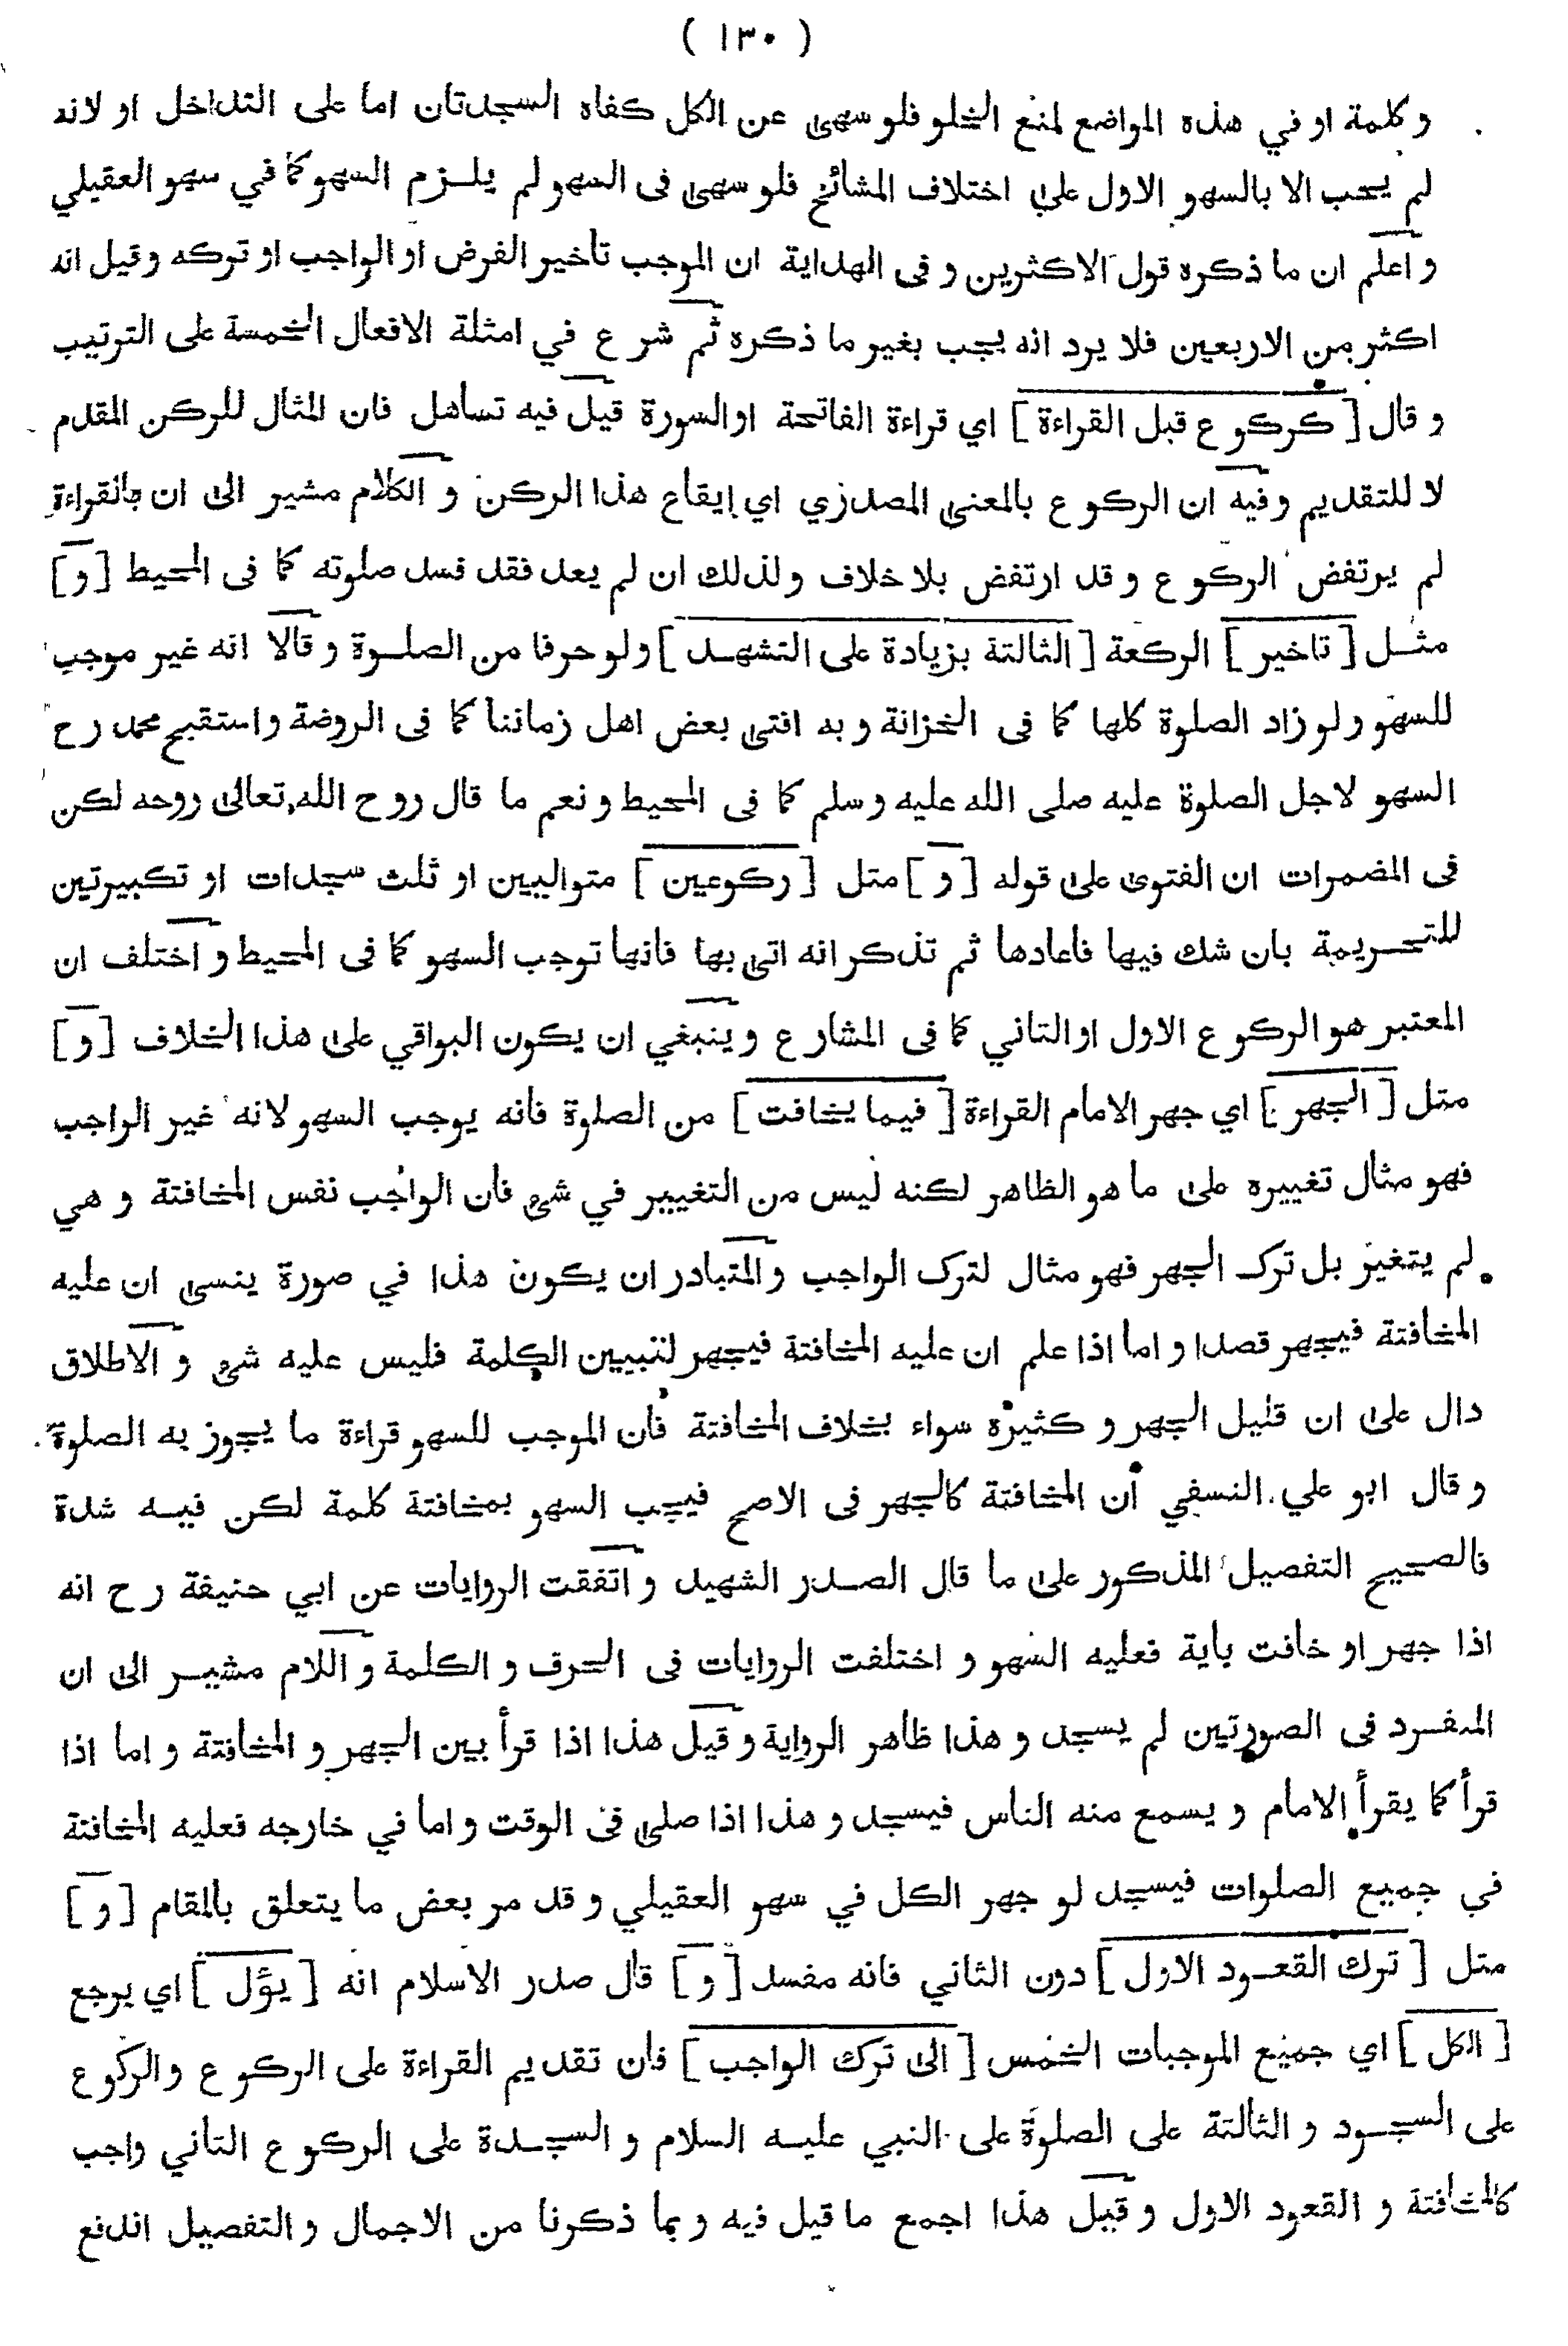 ( ١٣٠ )
و كلمة او في هذه المواضع لمنع الخلو فلو سهى عن الكل كفاه السجدتان اما على التداخل او لانه
لم يجب الا بالسهو الاول على اختلاف المشائخ فلو سهى فى السهو لم يلزم السهو كما في سهو العقيلي
و اعلم ان ما ذكره قول الاكثرين و فى الهداية ان الموجب تأخير الفرض او الواجب او تركه و قيل انه
اكثر من الاربعين فلا يرد انه يجب بغير ما ذكره ثم شرع في امثلة الافعال الخمسة على الترتيب
و قال [ كركوع قبل القراءة ] اي قراءة الفاتحة او السورة قيل فيه تساهل فان المثال للركن المقدم
لا للتقديم و فيه ان الركوع بالمعنى المصدري اي إيقاع هذا الركن و الكلام مشير الى ان بالقراءة
لم يرتفض الركوع و قد ارتفض بلا خلاف و لذلك ان لم يعد فقد فسد صلوته كما فى المحيط [ و ]
مثل [ تاخير ] الركعة [ الثالثة بزيادة على التشهد ] و لو حرفا من الصلوة و قالا انه غير موجب
للسهو و لو زاد الصلوة كلها كما فى الخزانة و به افتى بعض اهل زماننا كما فى الروضة و استقبح محمد رح
السهو لاجل الصلوة عليه صلى الله عليه و سلم كما فى المحيط و نعم ما قال روح الله تعالى روحه لكن
فى المضمرات ان الفتوى على قوله [ و ] مثل [ ركوعين ] متواليين او ثلث سجدات او تكبيرتين
للتحريمة بان شك فيها فاعادها ثم تذكر انه اتى بها فانها توجب السهو كما فى المحيط و اختلف ان
المعتبر هو الركوع الاول او الثاني كما فى المشارع و ينبغي ان يكون البواقي على هذا الخلاف [ و ]
مثل [ الجهر ] اي جهر الامام القراءة [ فيما يخافت ] من الصلوة فانه يوجب السهو لانه غير الواجب
فهو مثال تغييره على ما هو الظاهر لكنه ليس من التغيير في شئ فان الواجب نفس المخافتة و هي
لم يتغير بل ترك الجهر فهو مثال لترك الواجب و المتبادر ان يكون هذا في صورة ينسى ان عليه
المخافتة فيجهر قصدا و اما اذا علم ان عليه المخافتة فيجهر لتبيين الكلمة فليس عليه شئ و الاطلاق
دال على ان قليل الجهر و كثيره سواء بخلاف المخافتة فان الموجب للسهو قراءة ما يجوز به الصلوة
و قال ابو علي النسفي ان المخافتة كالجهر فى الاصح فيجب السهو بمخافتة كلمة لكن فيه شدة
فالصحيح التفصيل المذكور على ما قال الصدر الشهيد و اتفقت الروايات عن ابي حنيفة رح انه
اذا جهر او خافت باية فعليه السهو و اختلفت الروايات فى الحرف و الكلمة و اللام مشير الى ان
المنفرد فى الصورتين لم يسجد و هذا ظاهر الرواية و قيل هذا اذا قرأ بين الجهر و المخافتة و اما اذا
قرأ كما يقرأ الامام و يسمع منه الناس فيسجد و هذا اذا صلى فى الوقت و اما في خارجه فعليه المخافتة
في جميع الصلوات فيسجد لو جهر الكل في سهو العقيلي و قد مر بعض ما يتعلق بالمقام [ و ]
مثل [ ترك القعود الاول ] دون الثاني فانه مفسد [ و ] قال صدر الاسلام انه [ يؤل ] اي يرجع
[ الكل ] اي جميع الموجبات الخمس [ الى ترك الواجب ] فان تقديم القراءة على الركوع و الركوع
على السجود و الثالثة على الصلوة على النبي عليه السلام و السجدة على الركوع الثاني واجب
كالمخافتة و القعود الاول و قيل هذا اجمع ما قيل فيه و بما ذكرنا من الاجمال و التفصيل اندفع